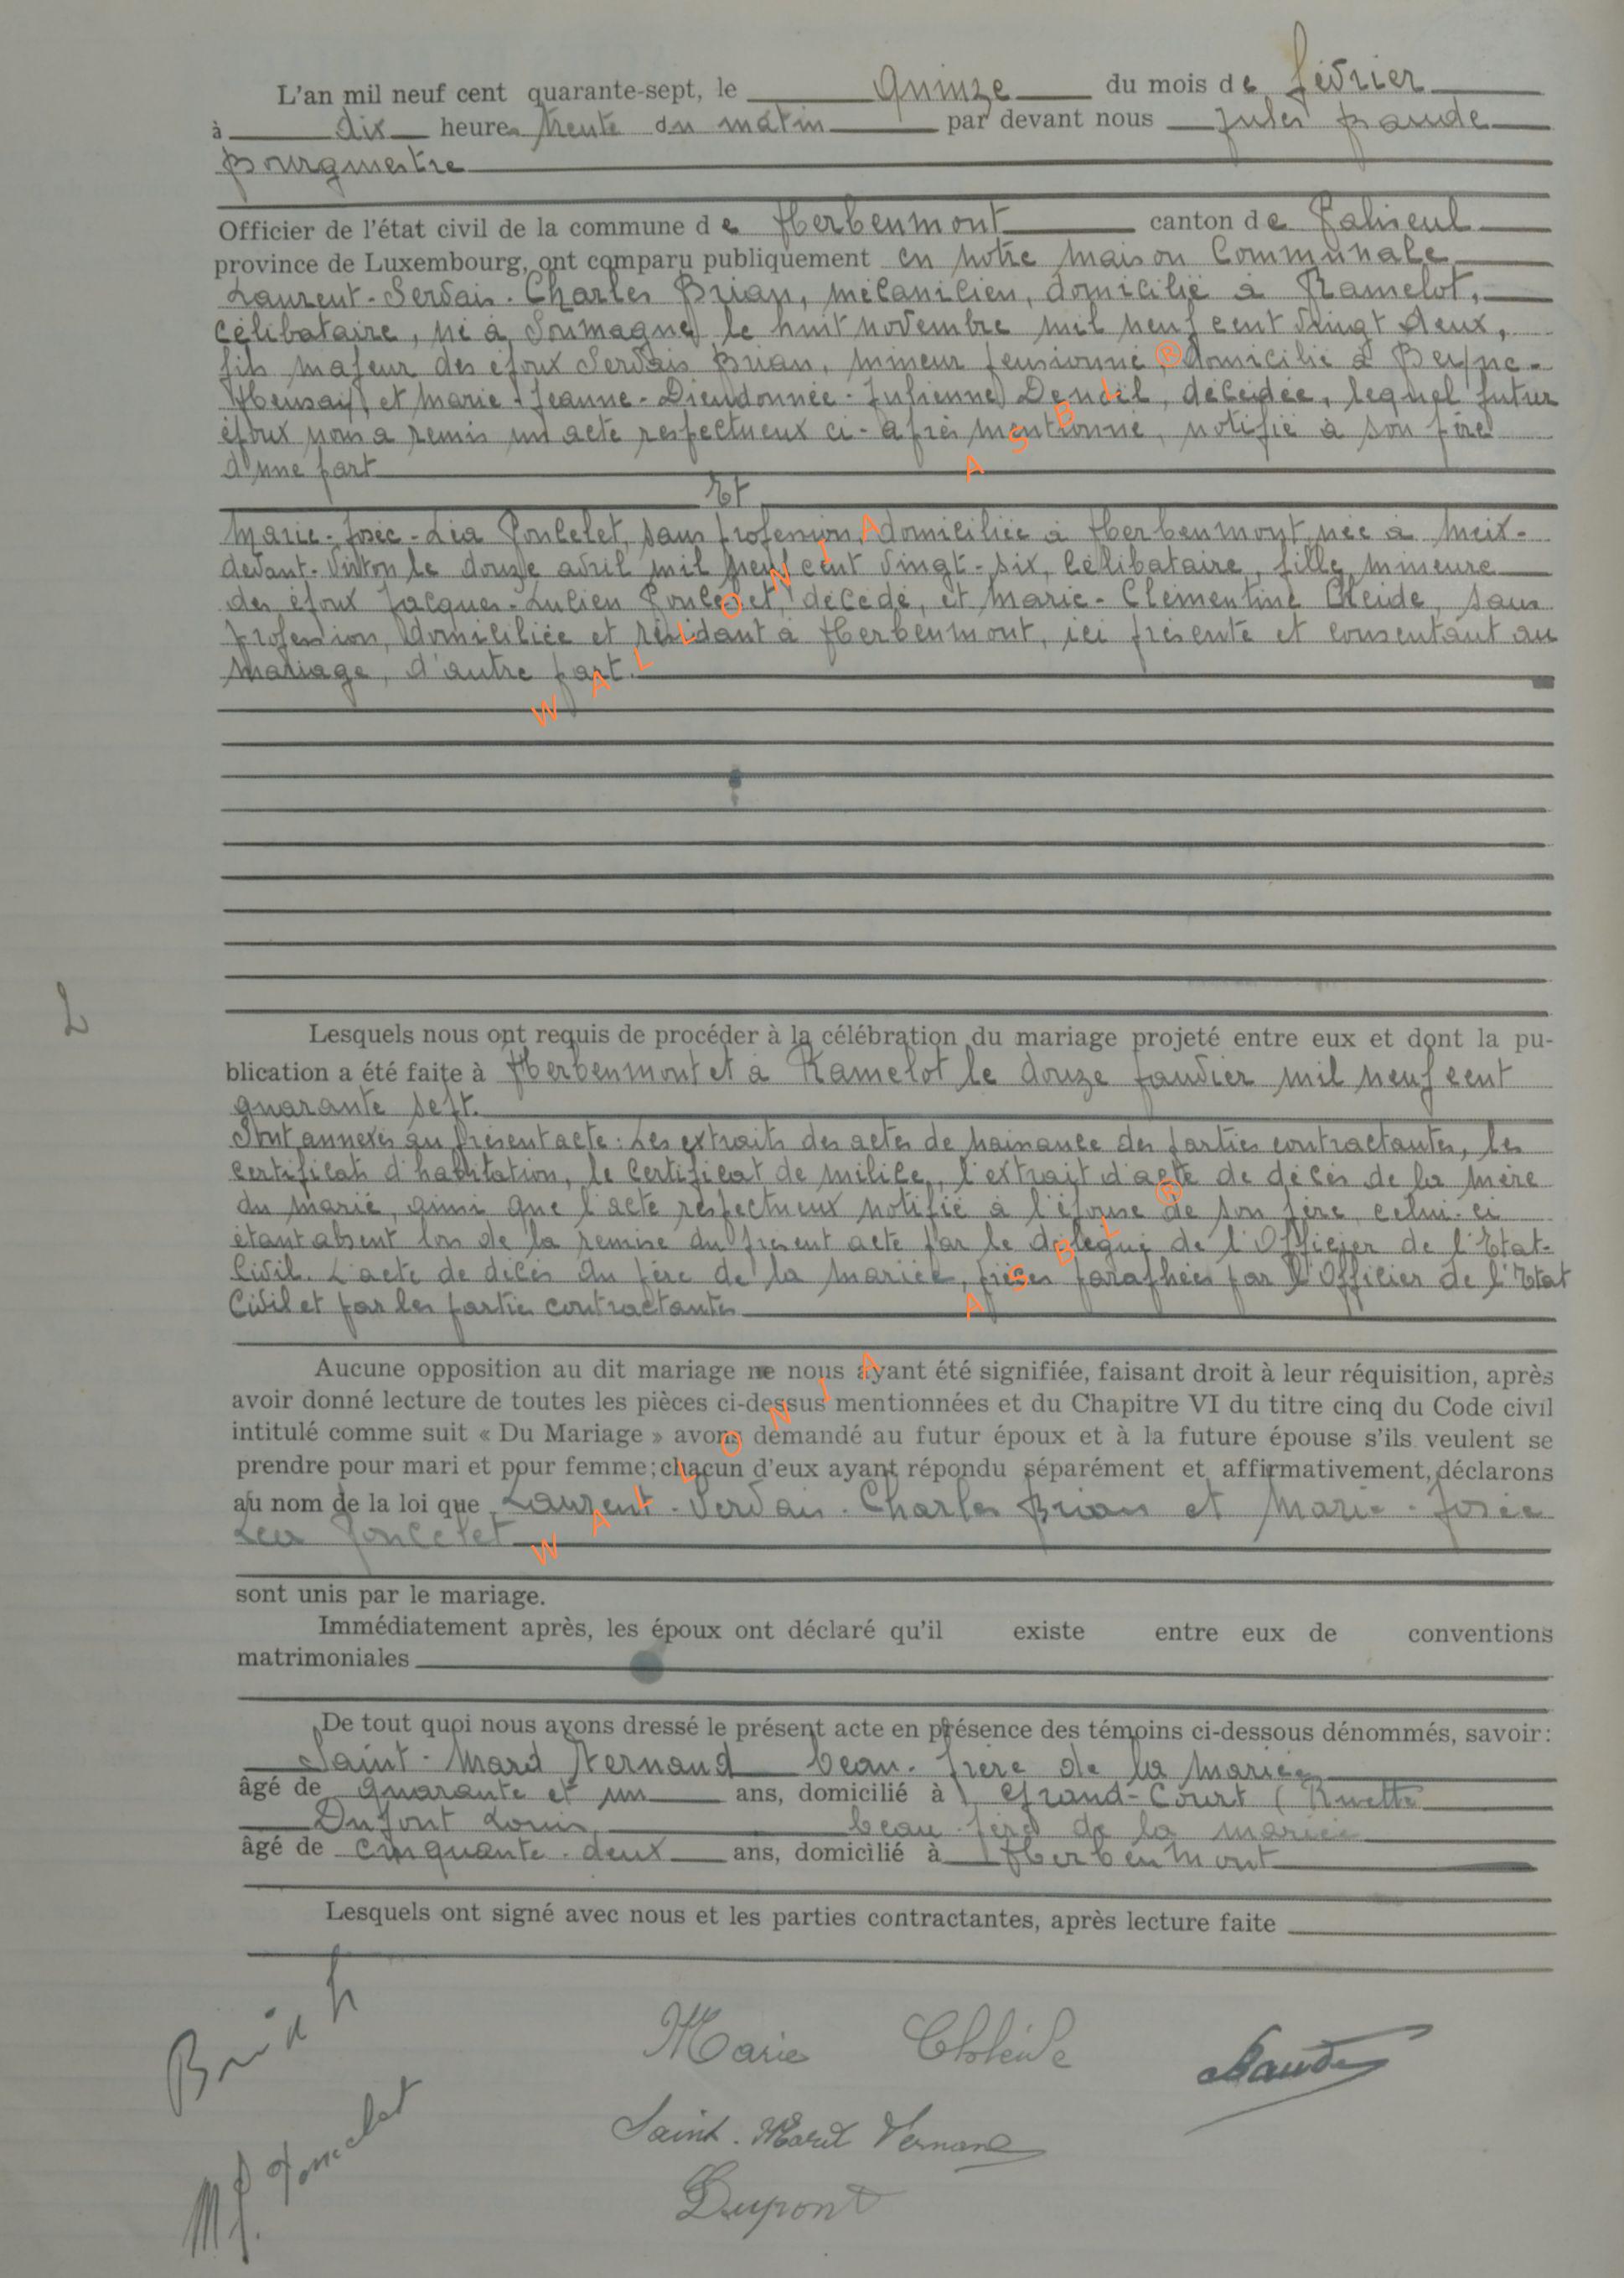 L'an mil neuf cent quarante-sept, le quinze du mois de février
à dix heures trente du matin par devant nous Jules Baude
Bourgmestre
Officier de l'état civil de la commune de Herbeumont canton de Paliseul
province de Luxembourg, ont comparu publiquement en notre maison Communale
Laurent-Servais-Charles Brian, mécanicien, domicilié à Ramelot,
célibataire, né à Soumagne le huit novembre mil neuf cent vingt deux,
fils majeur des époux Servais Brian, mineur pensionné, domicilié à Beyne-
Heusay, et Marie-Jeanne-Dieudonnée-Julienne Deudil, décédée, lequel futur
époux nous a remis un acte respectueux ci-après mentionné, notifié à son père
d'une part
Et
Marie-Josée-Léa Poncelet, sans profession, domiciliée à Herbeumont, née à Meix-
devant-Virton le douze avril mil neuf cent vingt-six, célibataire, fille mineure
des époux Jacques-Lucien Poncelet, décédé, et Marie-Clémentine Cléide, sans
profession, domiciliée et résidant à Herbeumont, ici présente et consentant au
mariage, d'autre part.
2
Lesquels nous ont requis de procéder à la célébration du mariage projeté entre eux et dont la pu-
blication a été faite à Herbeumont et à Ramelot le douze janvier mil neuf cent
quarante sept.
Sont annexés au présent acte : Les extraits des actes de naissance des parties contractantes, les
certificats d'habitation, le certificat de milice, l'extrait d'acte de décès de la mère
du marié, ainsi que l'acte respectueux notifié à l'épouse de son père, celui-ci
étant absent lors de la remise du présent acte par le délégué de l'Officier de l'Etat-
Civil. L'acte de décès du père de la mariée, pièces paraphées par l'Officier de l'Etat
Civil et par les parties contractantes
Aucune opposition au dit mariage ne nous ayant été signifiée, faisant droit à leur réquisition, après
avoir donné lecture de toutes les pièces ci-dessus mentionnées et du Chapitre VI du titre cinq du Code civil
intitulé comme suit « Du Mariage » avons demandé au futur époux et à la future épouse s'ils veulent se
prendre pour mari et pour femme; chacun d'eux ayant répondu séparément et affirmativement, déclarons
au nom de la loi que Laurent-Servais-Charles Brian et Marie-Josée
Léa Poncelet
sont unis par le mariage.
Immédiatement après, les époux ont déclaré qu'il existe entre eux de conventions
matrimoniales
De tout quoi nous avons dressé le présent acte en présence des témoins ci-dessous dénommés, savoir:
Saint-Mard Fernand beau-frère de la mariée
âgé de quarante et un ans, domicilié à Grand-Court (Ruette
Dupont Louis, beau-père de la mariée
âgé de cinquante-deux ans, domicilié à Herbeumont
Lesquels ont signé avec nous et les parties contractantes, après lecture faite
Brian
Marie Cléide
Baude
MJ. Poncelet
Saint-Mard Fernand
Dupont
WALLONIA ASBL ®
WALLONIA ASBL ®